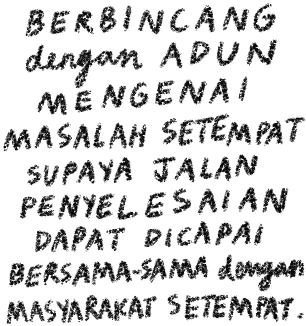 BERBINCANG
dengan ADUN
MENGENAI
MASALAH SETEMPAT
SUPAYA JALAN
PENYELESAIAN
DAPAT DICAPAI
BERSAMA-SAMA dengan
MASYARAKAT SETEMPAT.